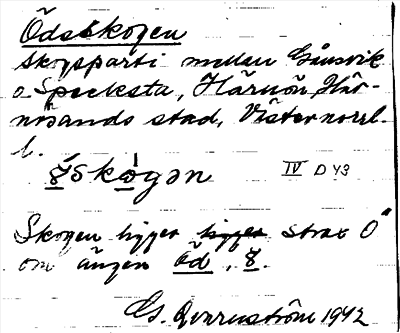 Ödsskogen
Skogsparti mellan Gånsvik
o. Specksta, Härnön, Här-
nösands stad, Västernorrl.
l.
skogən IV D 43
Skogen ligger ligger strax Ö
om ängen Öd, 8.
Gs. 1942